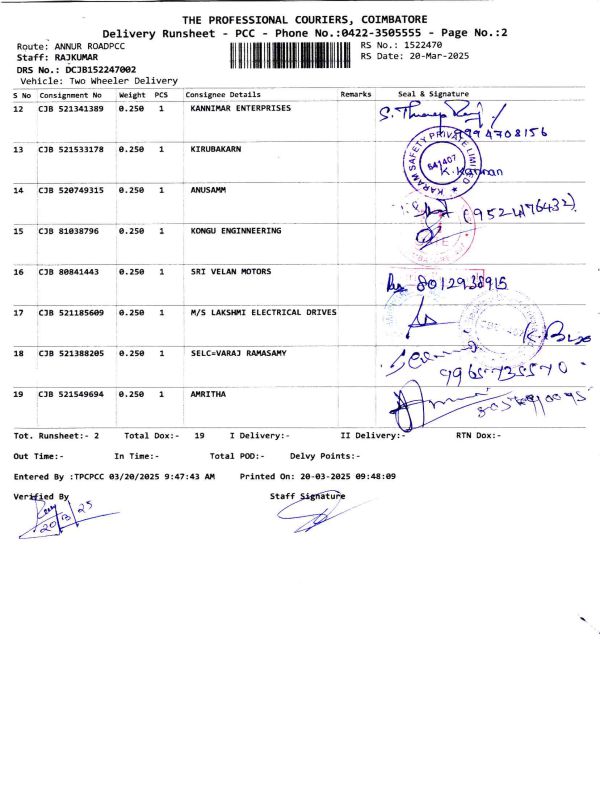 THE PROFESSIONAL COURIERS, COIMBATORE
Delivery Runsheet - PCC - Phone No.:0422-3505555 - Page No.:2
Route: ANNUR ROADPCC RS No.: 1522470
Staff: RAJKUMAR RS Date: 20-Mar-2025
DRS No.: DCJB152247002
Vehicle: Two Wheeler Delivery
S No Consignment No Weight PCS Consignee Details Remarks Seal & Signature
12 CJB 521341389 0.250 1 KANNIMAR ENTERPRISES
13 CJB 521533178 0.250 1 KIRUBAKARN
KARAM SAFETY PRIVATE LIMITED
641407
K. Kannan
14 CJB 520749315 0.250 1 ANUSAMM
15 CJB 81038796 0.250 1 KONGU ENGINNEERING
16 CJB 80841443 0.250 1 SRI VELAN MOTORS 8012938915
17 CJB 521185609 0.250 1 M/S LAKSHMI ELECTRICAL DRIVES
18 CJB 521388205 0.250 1 SELC=VARAJ RAMASAMY
9965735570
19 CJB 521549694 0.250 1 AMRITHA
Tot. Runsheet:- 2 Total Dox:- 19 I Delivery:- II Delivery:- RTN Dox:-
Out Time:- In Time:- Total POD:- Delvy Points:-
Entered By :TPCPCC 03/20/2025 9:47:43 AM Printed On: 20-03-2025 09:48:09
Verified By Staff Signature
20/3/25